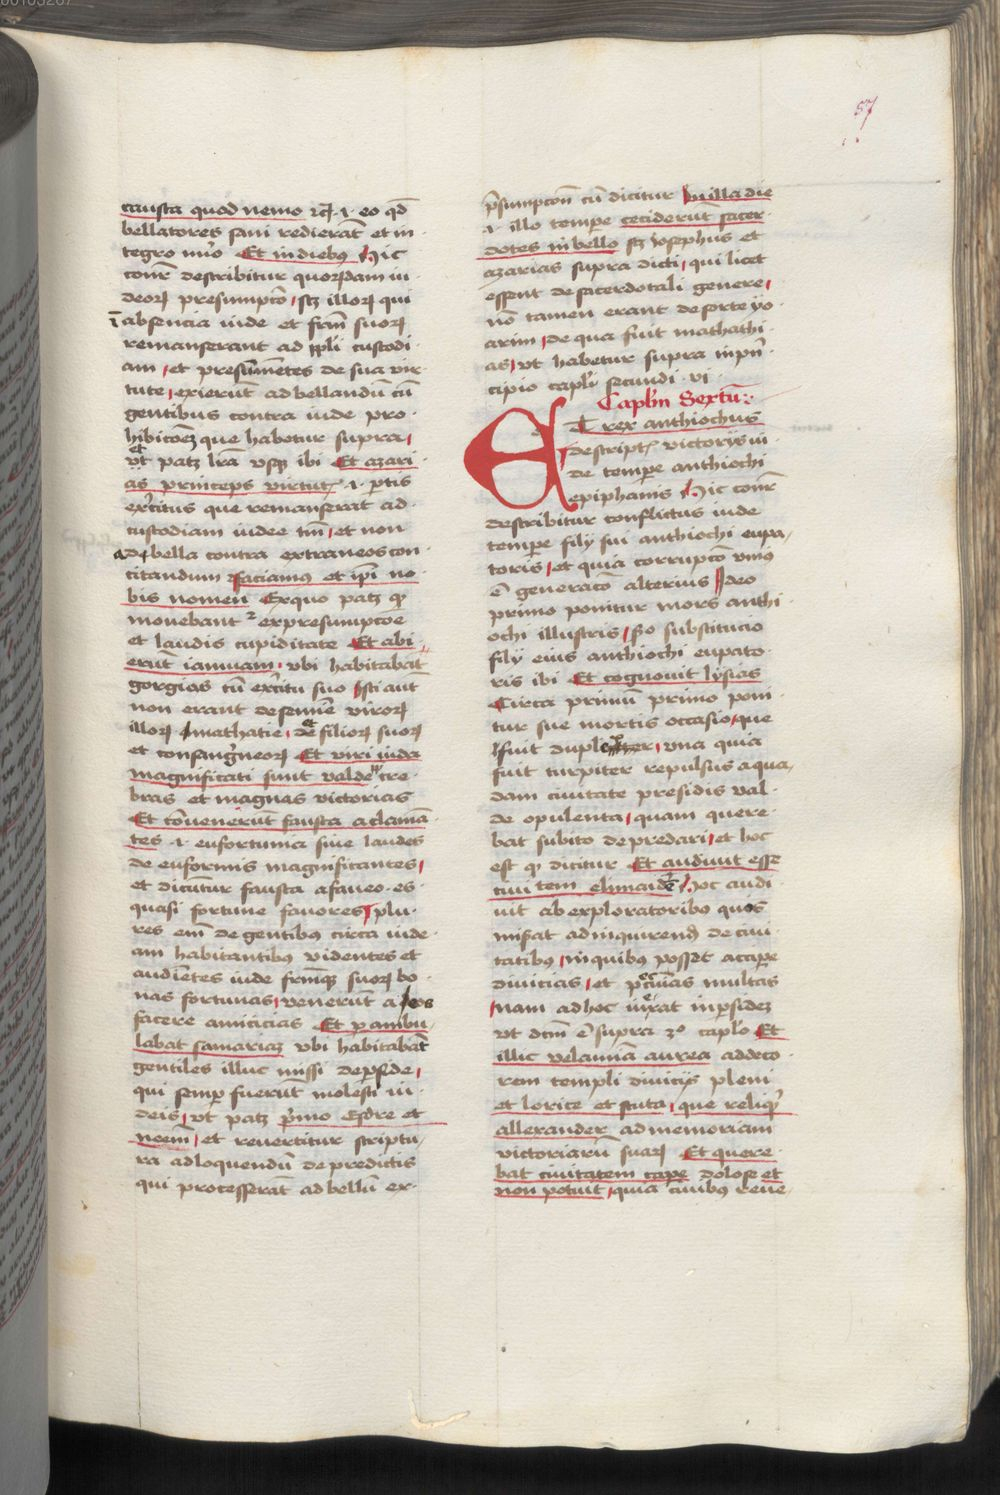 57
causta quod nemo rc̄ .i. eo qd̄
bellatores sani redierāt et in
tegro nūo Et in diebus Hic
conr̄ describitur quorundam iu
deorꝝ presumpcō sꝫ illorꝝ qui
ī absencia iude et frm̄ suorꝝ
remanserant ad ppl̄i custodi
am et presūmentes de sua vir
tute exierunt ad bellandū cū
gentibus contra iude pro
hibicōeꝫ que habetur supra
et vt patꝫ lr̄a vsqꝫ ibi Et azari
as princeps virtut .i. ꝑtis
exercitus que remanserat ad
custodiam iudee tm̄ et non
ad bella contra extraneos con
citandum faciamus et ip̄i no
bis nomen Exquo patꝫ qꝫ
mouebant ex presumpcōe
et laudis cupiditate Et abi
erūt iamniam vbi habitabat
gorgias cū exercitu suo Isti aut̄
non erant de semīe virorꝝ
illorꝝ mathatie et de filiorꝝ suorꝝ
et consangwineorꝝ Et viri iuda
magnificati sunt valde cre
bras et magnas victorias
Et cōuenerunt fausta acclamā
tes .i. eufortunia siue laudes
de eufortunis magnificantes
et dicūtur fausta a faueo es
quasi fortune fauores plu
res em̄ de gentibꝰ circa iude
am habitantibꝰ videntes et
audientes iude frm̄qꝫ suorꝝ bo
nas fortunas venerunt ad eos
facere amicicias Et ꝑambu
labat samariaꝫ vbi habitabāt
gentiles illuc missi de perside
qui semꝑ fuerūt molesti iu
deis vt patꝫ pͥmo Esdre et
neem̄ et reuertitur scriptu
ra ad loquendū de predictis
qui processerāt ad bellū ex
p̄sumpcōn cū dicitur In illa die
.i. illo tempe ceciderūt sacer
dotes in bello sꝫ iosephus et
azarias supra dicti qui licet
essent de sacerdotali genere
nō tamen erant de sorte yo
arim de qua fuit mathathi
as vt habetur supra in pn̄
cipio capl̄i secundi vi
Capl̄m Sextū
ET rex anthiochus
descriptꝭ victorijs iu
de tempe anthiochi
epiphanis Hic conr̄
describitur conflictus iude
tempe filij sui anthiochi eupa
toris et quia corrupcō vniꝰ
ē generacō alterius Ideo
primo ponitur mors anthi
ochi illustris sc̄do substitucio
filij eius anthiochi eupato
ris ibi Et cognouit lysias
Circa primū primo poni
tur sue mortis occasio que
fuit duplex vna quia
fuit turpiter repulsus a qua
dam ciuitate presidis val
de opulenta quam quere
bat subito depredari et hoc
est qꝫ dicitur Et audiuit esse
ciuitem elimaidꝫ hoc audi
uit ab exploratoribꝰ quos
mis̄at ad inquirendū de ciui
tatibꝰ in quibus possꝫ accipe
diuicias et pecunias multas
nam ad hoc iuerat in persideꝫ
vt dcm̄ ē supra 3º caplo Et
illic velamina aurea ad deco
rem templi diuicijs pleni
et lorice et scuta que reliqͥt
allexander ad memoriam
victoriarū suarꝝ Et quere
bat ciuitatem cape dolose et
non potuit quia ciuibus reue